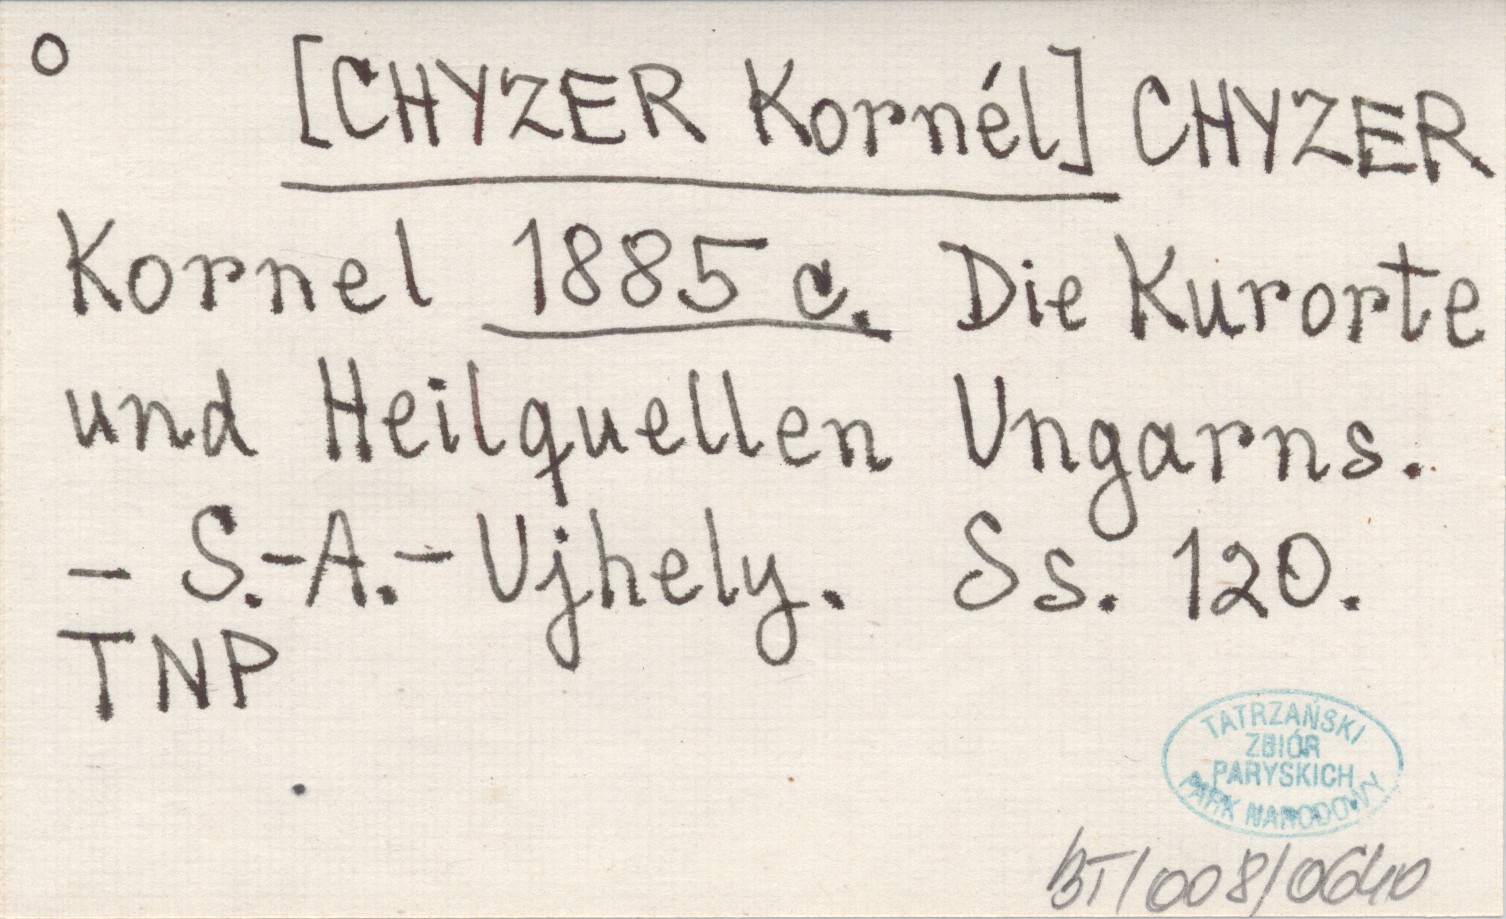 O [CHYZER Kornél] CHYZER
Kornel 1885 c. Die Kurorte
und Heilquellen Ungarns.
– S.-A.-Ujhely. Ss. 120.
TNP
TATRZAŃSKI
ZBIÓR
PARYSKICH
PARK NARODOWY
BT/008/0640